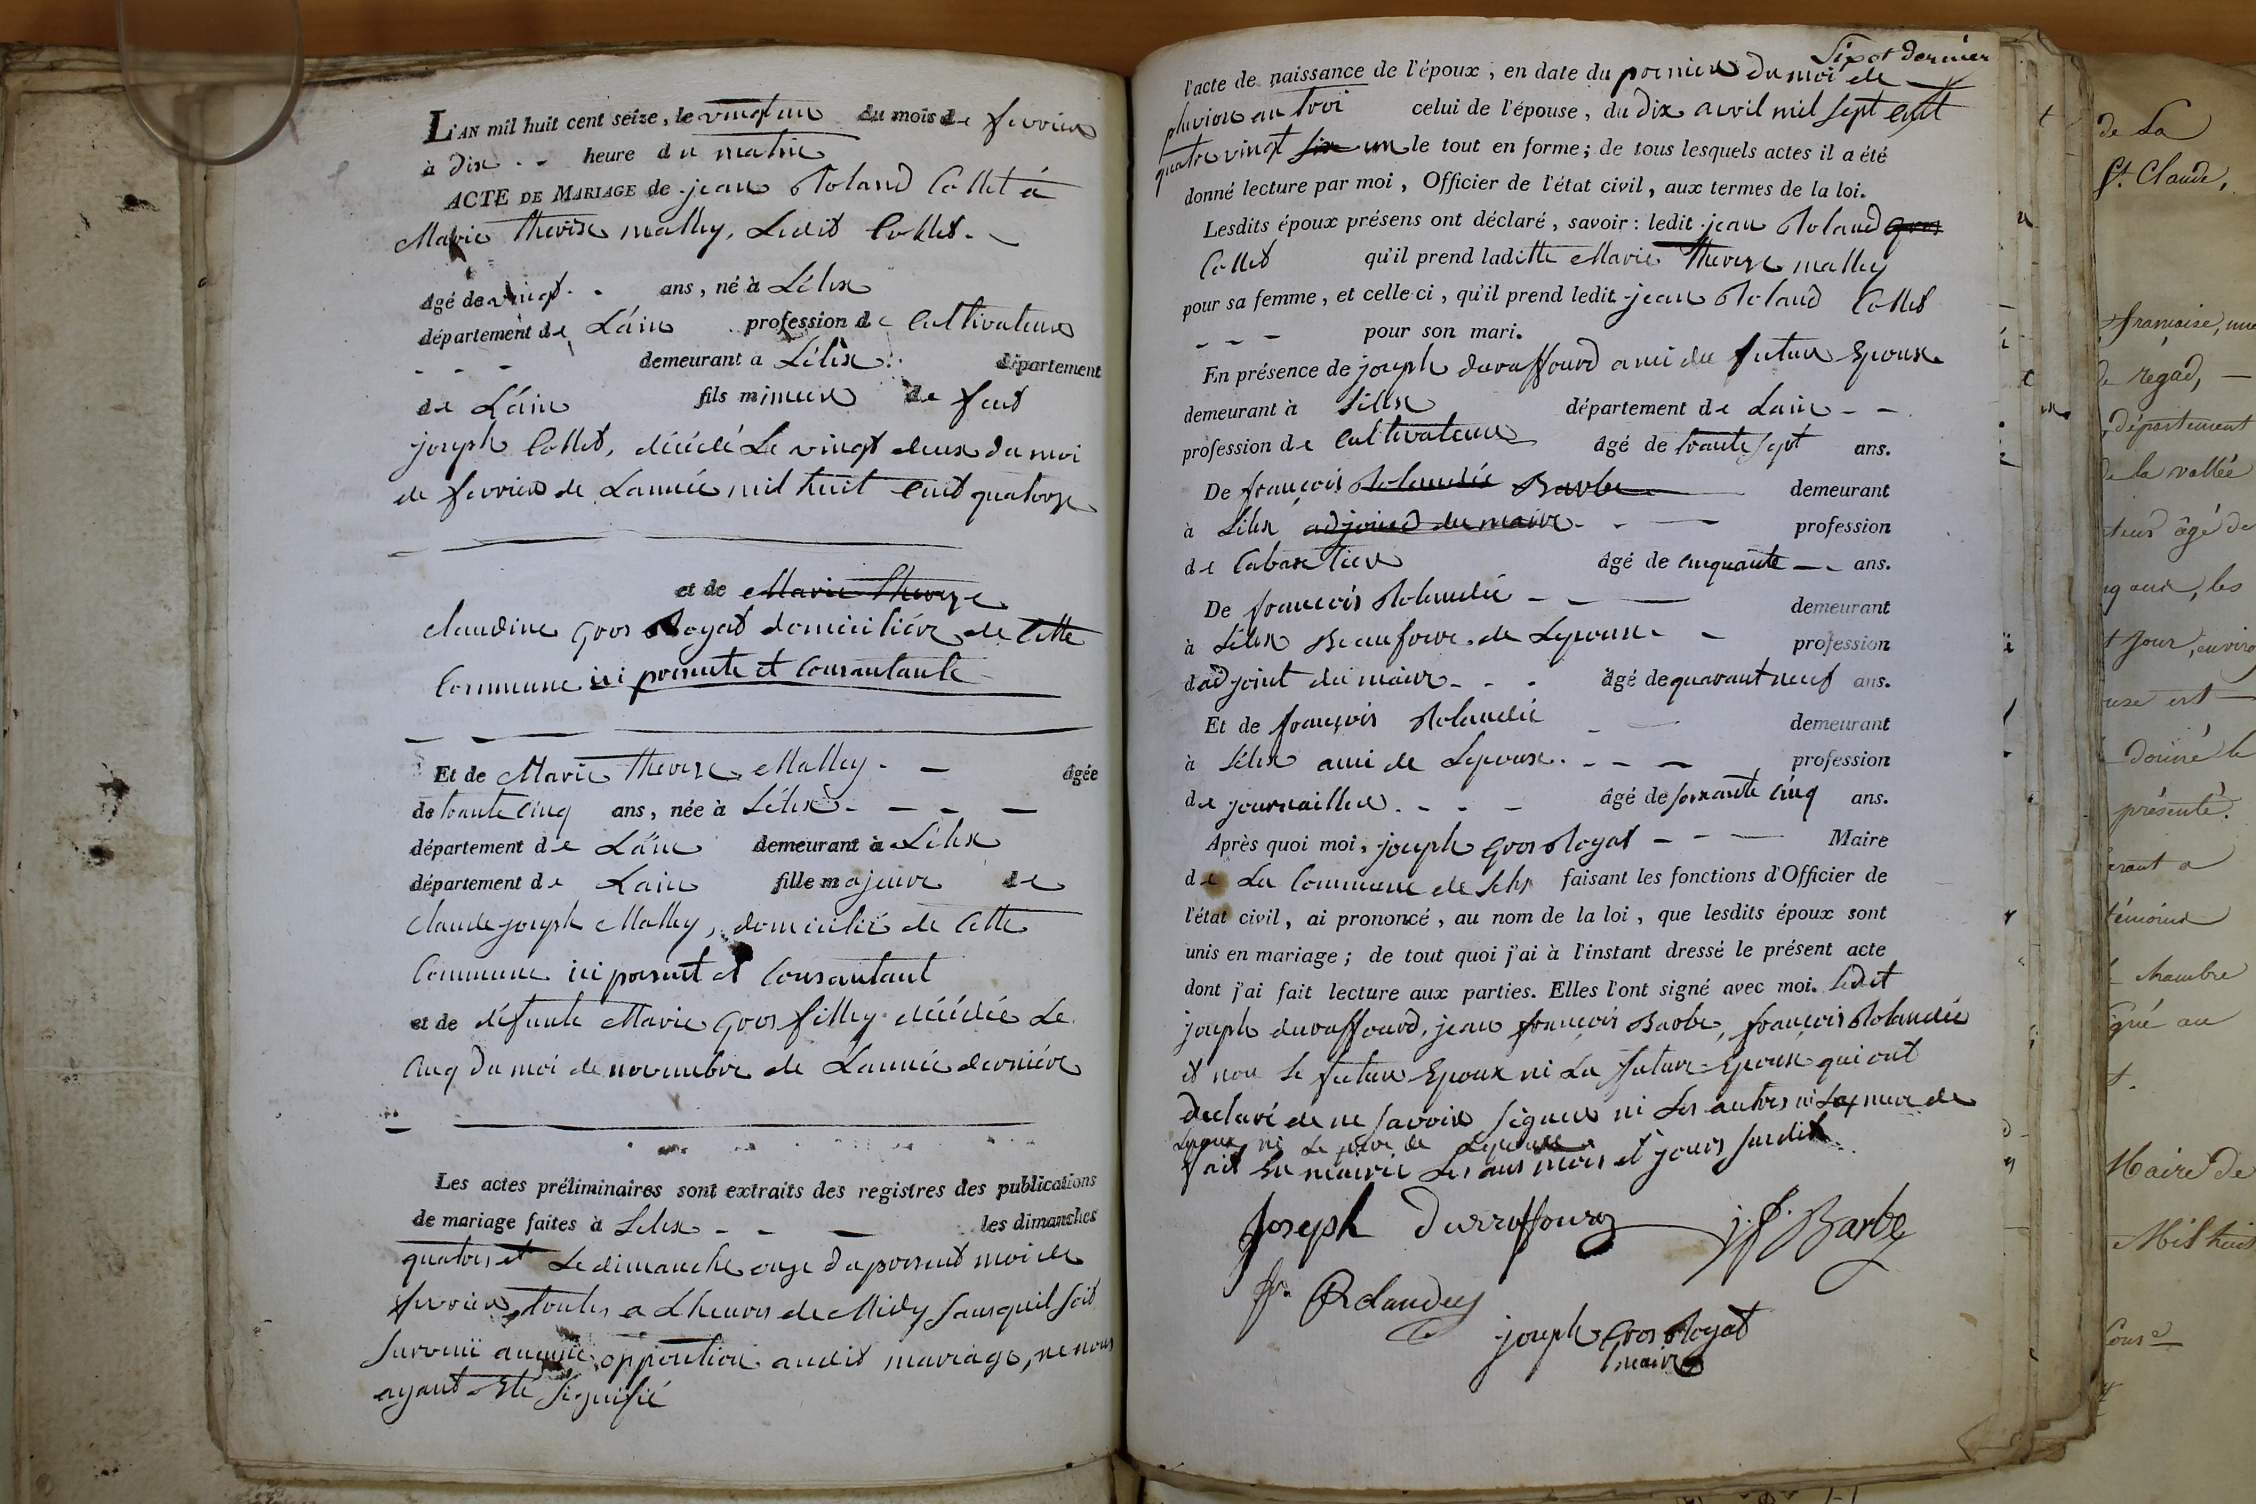 L'AN mil huit cent seize, le vingt un du mois de fevrier
à dix heure du matin
ACTE DE MARIAGE de jean Roland Collet à
Marie therese malley, Ledit Collet.
âgé de vingt ans, né à Lélex
département de L'ain profession de Cultivateur
demeurant à Lélex département
de L'ain fils mineur de feut
joseph Collet, décédé Le vingt deux du moi
de fevrier de L'année mil huit cent quatorze
et de Marie Therese
claudine gros Royat domiciliére de Cette
Commune ici presente et Consantante
Et de Marie Therese Malley âgée
de trante cinq ans, née à Lélex
département de L'ain demeurant à Lélex
département de Lain fille majeure de
Claude joseph Malley, domicilié de Cette
Commune ici present et Consantant
et de défunte Marie gros filley décédée Le
cinq du moi de novembre de L'année derniére
Les actes préliminaires sont extraits des registres des publications
de mariage faites à Lelex les dimanches
quatres et Le dimanche onze du present moi de
fevrier, toutes a L'heures de Midy sans quil soit
survenü aucune opposition audit mariage, ne nous
ayant été signifié
l'acte de naissance de l'époux, en date du premier du moi de
pluviose an troi celui de l'épouse, du dix avril mil sept cent
quatre vingt six un le tout en forme; de tous lesquels actes il a été
donné lecture par moi, Officier de l'état civil, aux termes de la loi.
Lesdits époux présens ont déclaré, savoir: ledit jean Roland gros
Collet qu'il prend laditte Marie Therese malley
pour sa femme, et celle-ci, qu'il prend ledit jean Roland Collet
pour son mari.
En présence de joseph duraffourd ami du futur Epoux
demeurant à Lélex département de Lain
profession de Cultivateur âgé de trante sept ans.
De françois Rolandée Barbe demeurant
à Lélex adjoint du maire profession
de Cabaretier âgé de cinquante ans.
De françois Rolandée demeurant
à Lélex Beaufrere de Lepouse profession
d'adjoint du maire âgé de quarant neuf ans.
Et de françois Rolandée demeurant
à Lélex ami de Lepoux profession
de journaillier âgé de soixante cinq ans.
Après quoi moi, joseph gros Royat Maire
de La Commune de Lelex faisant les fonctions d'Officier de
l'état civil, ai prononcé, au nom de la loi, que lesdits époux sont
unis en mariage; de tout quoi j'ai à l'instant dressé le présent acte
dont j'ai fait lecture aux parties. Elles l'ont signé avec moi. Ledit
joseph duraffourd, jean françois Barbe, françois Rolandée
et non Le futur Epoux ni La future Epouse qui ont
declaré de ne savoir signer ni Les autres ni La mere de
Lepoux ni Le pere de Lepouse
fait En mairie Les ans mois et jours susdit
Joseph Durraffourg j. f. Barbe
fr. Rolandey
joseph gros Royat
maire
de La
St. Claude,
française, une
de régad,
département
de la vallée
âgé de
les
t jour, environ
use est
donné le
présenté.
témoins
chambre
Maire de
Mil huit